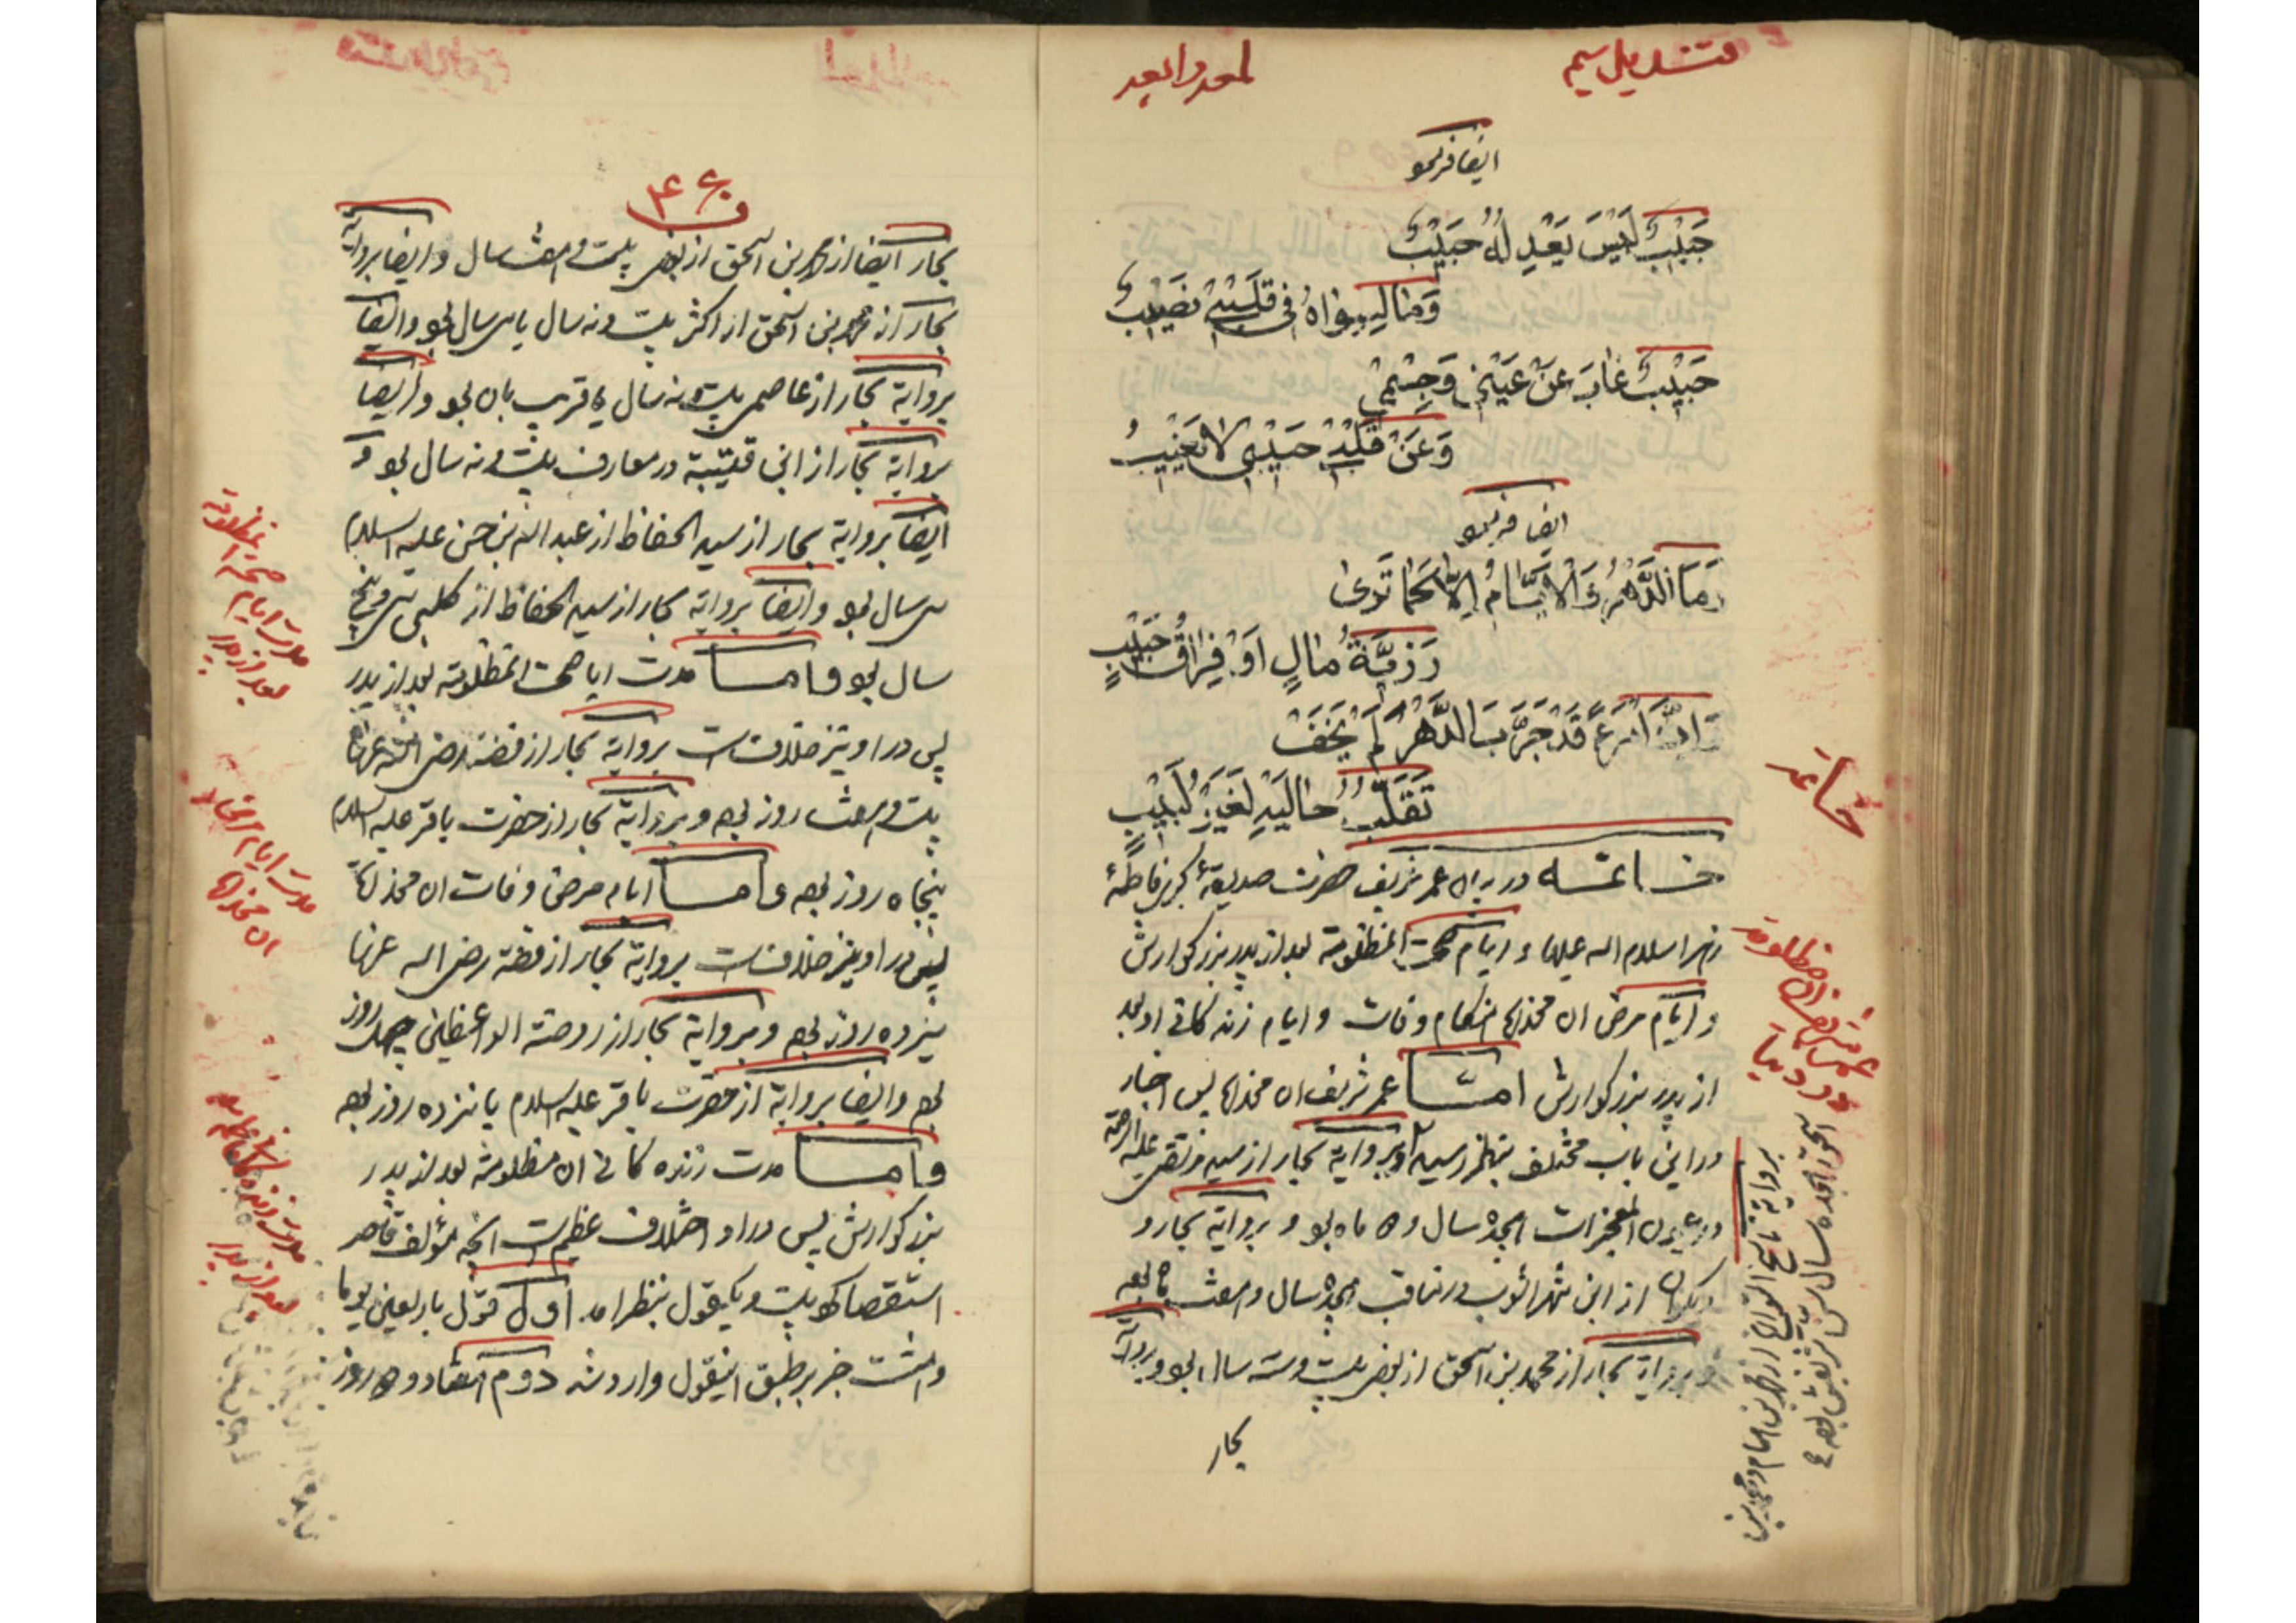 قندیل سیم
لمعه رابعه
ایضا فرمو
حَبِیْبٌ لَیْسَ یَعْدِلُهُ حَبِیْبٌ
وَمٰا لِسِوٰاهُ فِی قَلْبِی نَصِیْبٌ
حَبِیْبٌ غٰابَ عَنْ عَیْنِی وَجِسْمِی
وَعَنْ قَلْبِی حَبِیْبِی لٰا یَغِیْبُ
ایضا فرمو
وَمَا الدَّهْرُ وَالْاَیّٰامُ اِلّٰا کَمٰا تَرٰی
رَزِیَّةُ مٰالٍ اَوْ فِرٰاقُ حَبِیْبٍ
وَاِنَّ امْرَءً قَدْ جَرَّبَ الدَّهْرَ لَمْ یَخَفْ
تَقَلُّبَ حٰالَیْهِ لَغَیْرُ لَبِیْبٍ
خاتمه در بیان عمر شریف حضرت صدیقهٔ کبری فاطمهٔ
زهرا سلام اله علیها و ایام صحت المظلومة بعد از پدر بزرکوارش
و ایام مرض ان مخدره هنکام وفات و ایام زنده کانی او بعد
از پدر بزرکوارش اما عمر شریف ان مخدره پس اخبار
در این باب مختلف بنظر رسیده بروایة بحار از سید مرتضی علیه الرحمة
در عیون المعجزات هجده سال و ماه بو و بروایة بحار و
از ابن شهر اشوب در مناقب هجده سال و هفت ماه بوه
و بروایة بحار از محمد بن اسحق از بعضی بیست و سه سال بو و بروایة
بحار
خاتمه
بروایة ناسخ التواریخ از
۴۶۰
بحار ایضا از محمد بن اسحق از بعضی بیست و هفت سال و ایضا بروایة
بحار از محمد بن اسحق از اکثر بیست و نه سال یا سی سال بو و ایضا
بروایة بحار از عاصمی بیست و نه سال یا قریب بان بو و ایضا
بروایة بحار از ابن قتیبة در معارف بیست و نه سال بو و
ایضا بروایة بحار از سید الحفاظ از عبد الله بن حسن علیه السلام
سی سال بو و ایضا بروایة بحار از سید الحفاظ از کلبی سی و پنج
سال بو و اما مدت ایام صحت المظلومة بعد از پدر
پس در او نیز خلافست بروایة بحار از فضة رضی الله عنها
بیست و هفت روز بوه و بروایة بحار از حضرت باقر علیه السلام
پنجاه روز بوه و اما ایام مرض وفات ان مخدره
پس در او نیز خلافست بروایة بحار از فضة رضی اله عنها
سیزده روز بوه و بروایة بحار از روضة الواعظین چهل روز
بوه و ایضا بروایة از حضرت باقر علیه السلام پانزده روز بوه
و اما مدت زنده کانی ان مظلومة بعد از پدر
بزرکوارش پس در او اختلاف عظیم است انچه مؤلف قاصر
استقصا کرده بیست و یکقول بنظر امد اول قول باربعین یوما
و هشت خبر بر طبق اینقول وارد شده دوم هفتاد و روز
مدت ایام صحت المظلومة
بعد از پدر
مدت ایام
ان مخدره
مدت زنده کانی
بعد از پدر